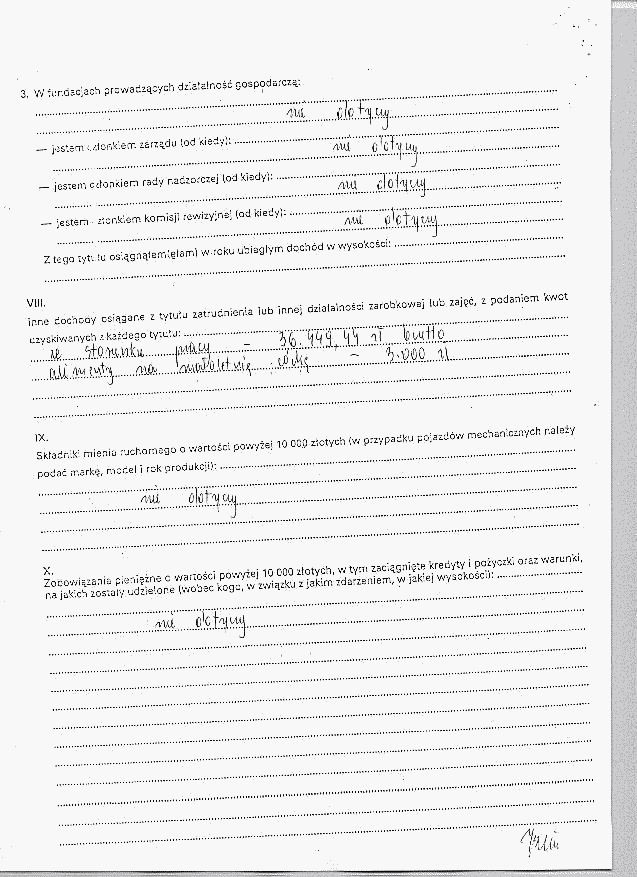 3. W fundacjach prowadzących działalność gospodarczą:
nie dotyczy
— jestem członkiem zarządu (od kiedy):
nie dotyczy
— jestem członkiem rady nadzorczej (od kiedy):
nie dotyczy
— jestem członkiem komisji rewizyjnej (od kiedy):
nie dotyczy
Z tego tytułu osiągnąłem(ęłam) w roku ubiegłym dochód w wysokości:
VIII.
Inne dochody osiągane z tytułu zatrudnienia lub innej działalności zarobkowej lub zajęć, z podaniem kwot
uzyskiwanych z każdego tytułu:
ze stosunku pracy – 36.444,44 zł brutto
alimenty na małoletnią córkę – 3.000 zł
IX.
Składniki mienia ruchomego o wartości powyżej 10 000 złotych (w przypadku pojazdów mechanicznych należy
podać markę, model i rok produkcji):
nie dotyczy
X.
Zobowiązania pieniężne o wartości powyżej 10 000 złotych, w tym zaciągnięte kredyty i pożyczki oraz warunki,
na jakich zostały udzielone (wobec kogo, w związku z jakim zdarzeniem, w jakiej wysokości):
nie dotyczy